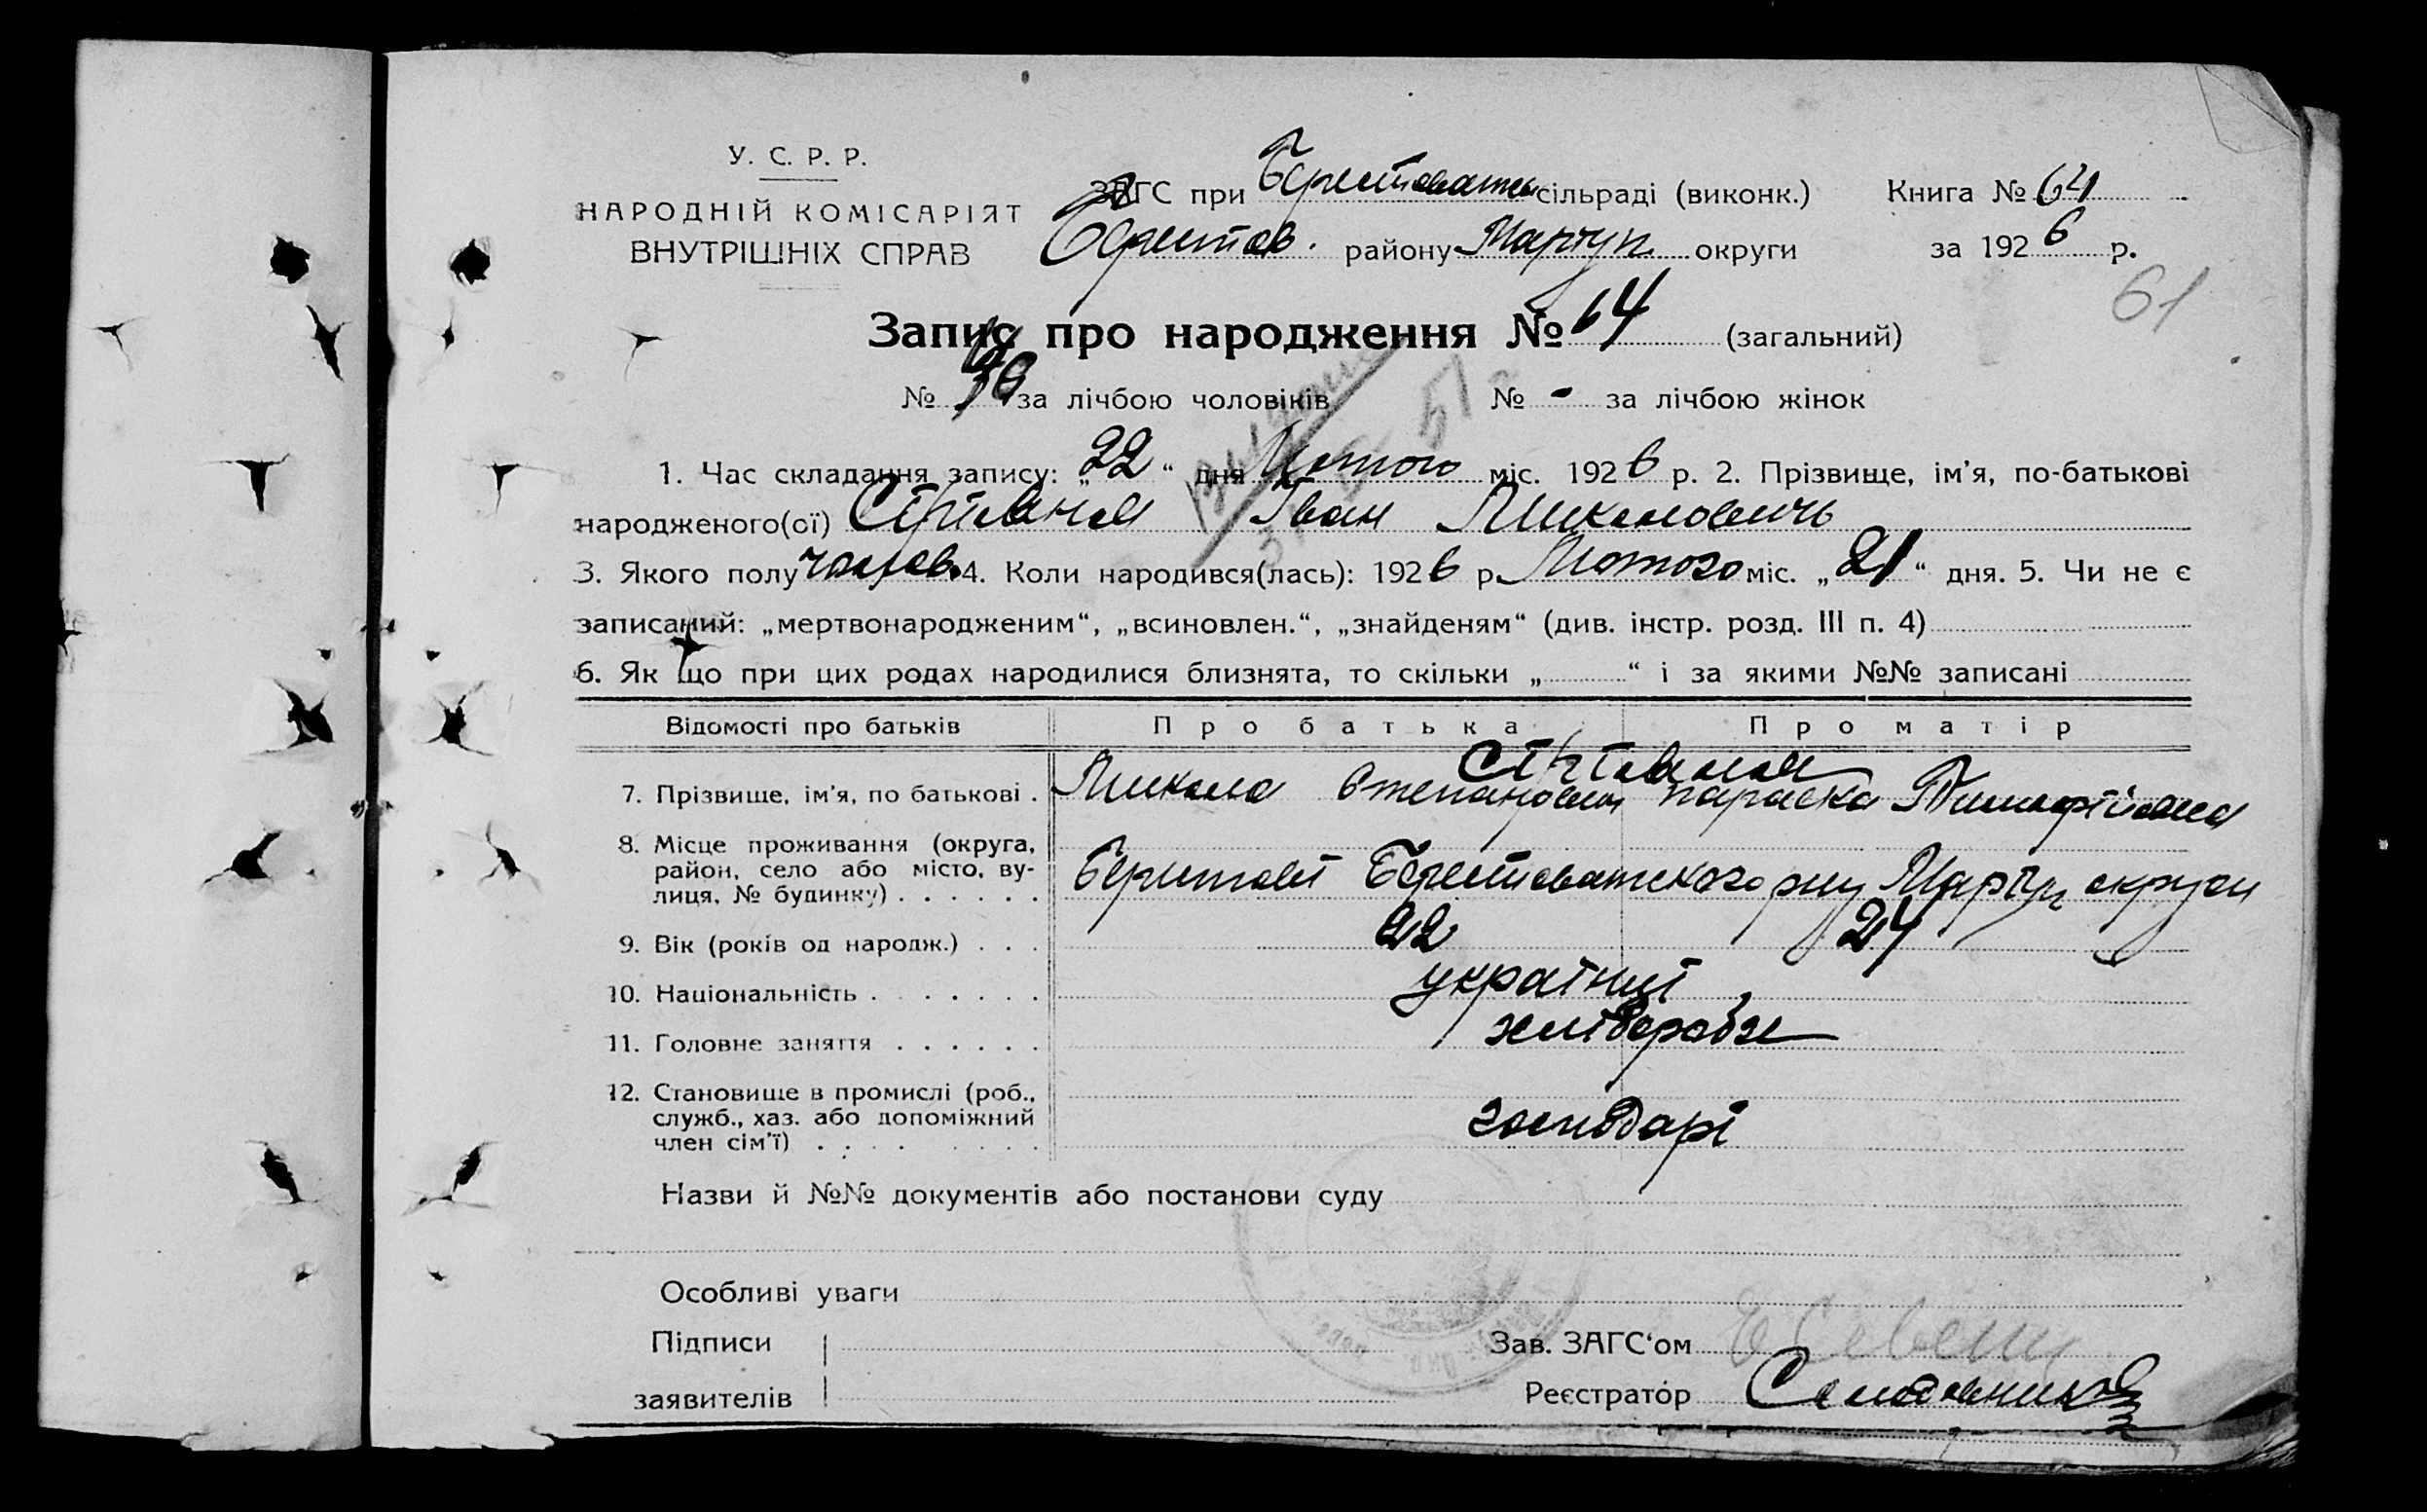 У. С. Р. Р.
НАРОДНІЙ КОМІСАРІЯТ
ВНУТРІШНІХ СПРАВ
ЗАГС при сільраді (виконк.)
Берестов. району Маріуп. округи
Книга № 64
за 1926 р.
61
Запис про народження № 64 (загальний)
№ за лічбою чоловіків № - за лічбою жінок
1. Час складання запису: „22“ дня Лютого міс. 1926 р. 2. Прізвище, ім'я, по-батькові
народженого(ої) Іван Миколовичь
3. Якого полу 4. Коли народився(лась): 1926 р. Лютого міс. „21“ дня. 5. Чи не є
записаний: „мертвонародженим“, „всиновлен.“, „знайденям“ (див. інстр. розд. III п. 4)
6. Як що при цих родах народилися близнята, то скільки „ “ і за якими №№ записані
Відомості про батьків Про батька Про матір
7. Прізвище, ім'я, по батькові . Микола Степанович Параска Тимофіівна
8. Місце проживання (округа,
район, село або місто, ву-
лиця, № будинку) . . . . . . Берестове Берестоватского рну Маріуп округи
9. Вік (років од народж.) . . . 22 24
10. Національність . . . . . . . українці
11. Головне заняття . . . . . . хліборобж
12. Становище в промислі (роб.,
служб., хаз. або допоміжний
член сім'ї) . . . . . . . . господарі
Назви й №№ документів або постанови суду
Особливі уваги
Підписи
заявителів
Зав. ЗАГС'ом
Реєстратор